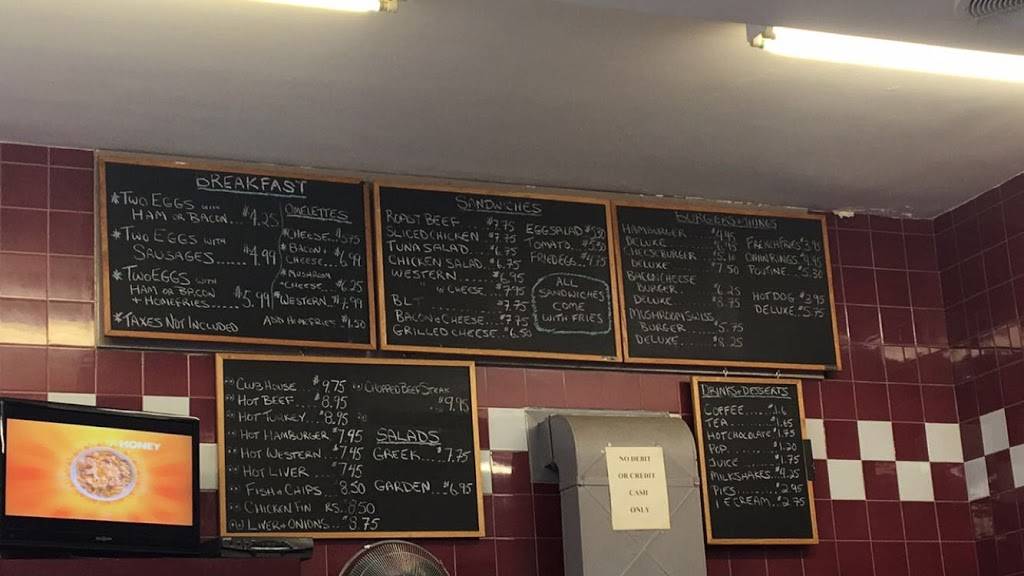 BREAKFAST
*TWO EGGS WITH
HAM OR BACON. $4.25
*TWO EGGS WITH
SAUSAGES...... $4.99
*TWO EGGS WITH
HAM OR BACON
+ HOMEFRIES.... $5.99
*TAXES NOT INCLUDED
OMELETTES
*CHEESE..
*BACON +
CHEESE. $6.99
*MUSHROOM
+CHEESE. $6.25
*WESTERN.
ADD HOMEFRIES. $1.50
SANDWICHES
ROAST BEEF $7.75
SLICED CHICKEN $7.75
TUNA SALAD
CHICKEN SALAD
WESTERN
" W CHEESE
BLT
BACON + CHEESE $7.75
GRILLED CHEESE $6.50
EGG SALAD
TOMATO
FRIED EGG
ALL
SANDWICHES
COME
WITH FRIES
HAMBURGER
DELUXE
CHEESEBURGER
DELUXE 7.50
BACON CHEESE
BURGER $6.25
DELUXE $8.75
MUSHROOM SWISS
BURGER $5.75
DELUXE $8.25
FRENCH FRIES
ONION RINGS
POUTINE
HOT DOG $3.95
DELUXE $5.75
CLUB HOUSE... $9.75
HOT BEEF .... $8.95
HOT TURKEY.... $8.95
HOT HAMBURGER $7.95
HOT WESTERN.. $7.95
HOT LIVER $7.95
FISH + CHIPS.. 8.50
CHICKEN FIN RS. 8.50
LIVER + ONIONS.. $8.75
CHOPPED BEEF STEAK
SALADS
GREEK... $7.75
GARDEN.. $6.95
DRINKS + DESSERTS
COFFEE
TEA
HOT CHOCOLATE
POP
JUICE
MILKSHAKES
PIES
ICE CREAM
NO DEBIT
OR CREDIT
CASH
ONLY
HONEY